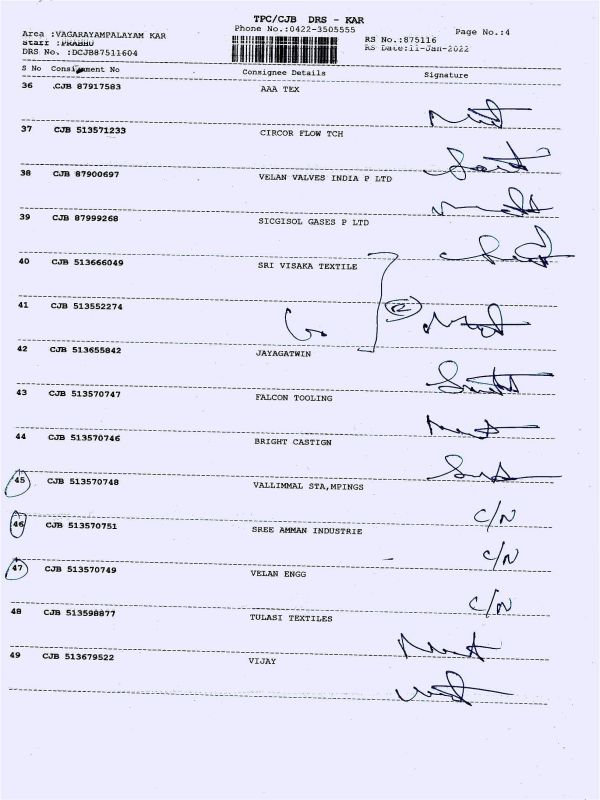 TPC/CJB DRS - KAR
Phone No.:0422-3505555
Page No.:4
Area :VAGARAYAMPALAYAM KAR
RS No.:875116
Staff :PRABHU
RS Date:11-Jan-2022
DRS No. :DCJB87511604
S No Consignment No Consignee Details Signature
36 CJB 87917583 AAA TEX
37 CJB 513571233 CIRCOR FLOW TCH
38 CJB 87900697 VELAN VALVES INDIA P LTD
39 CJB 87999268 SICGISOL GASES P LTD
40 CJB 513666049 SRI VISAKA TEXTILE
41 CJB 513552274
42 CJB 513655842 JAYAGATWIN
43 CJB 513570747 FALCON TOOLING
44 CJB 513570746 BRIGHT CASTIGN
45 CJB 513570748 VALLIMMAL STA,MPINGS
C/N
46 CJB 513570751 SREE AMMAN INDUSTRIE
C/N
47 CJB 513570749 VELAN ENGG
C/N
48 CJB 513598877 TULASI TEXTILES
49 CJB 513679522 VIJAY